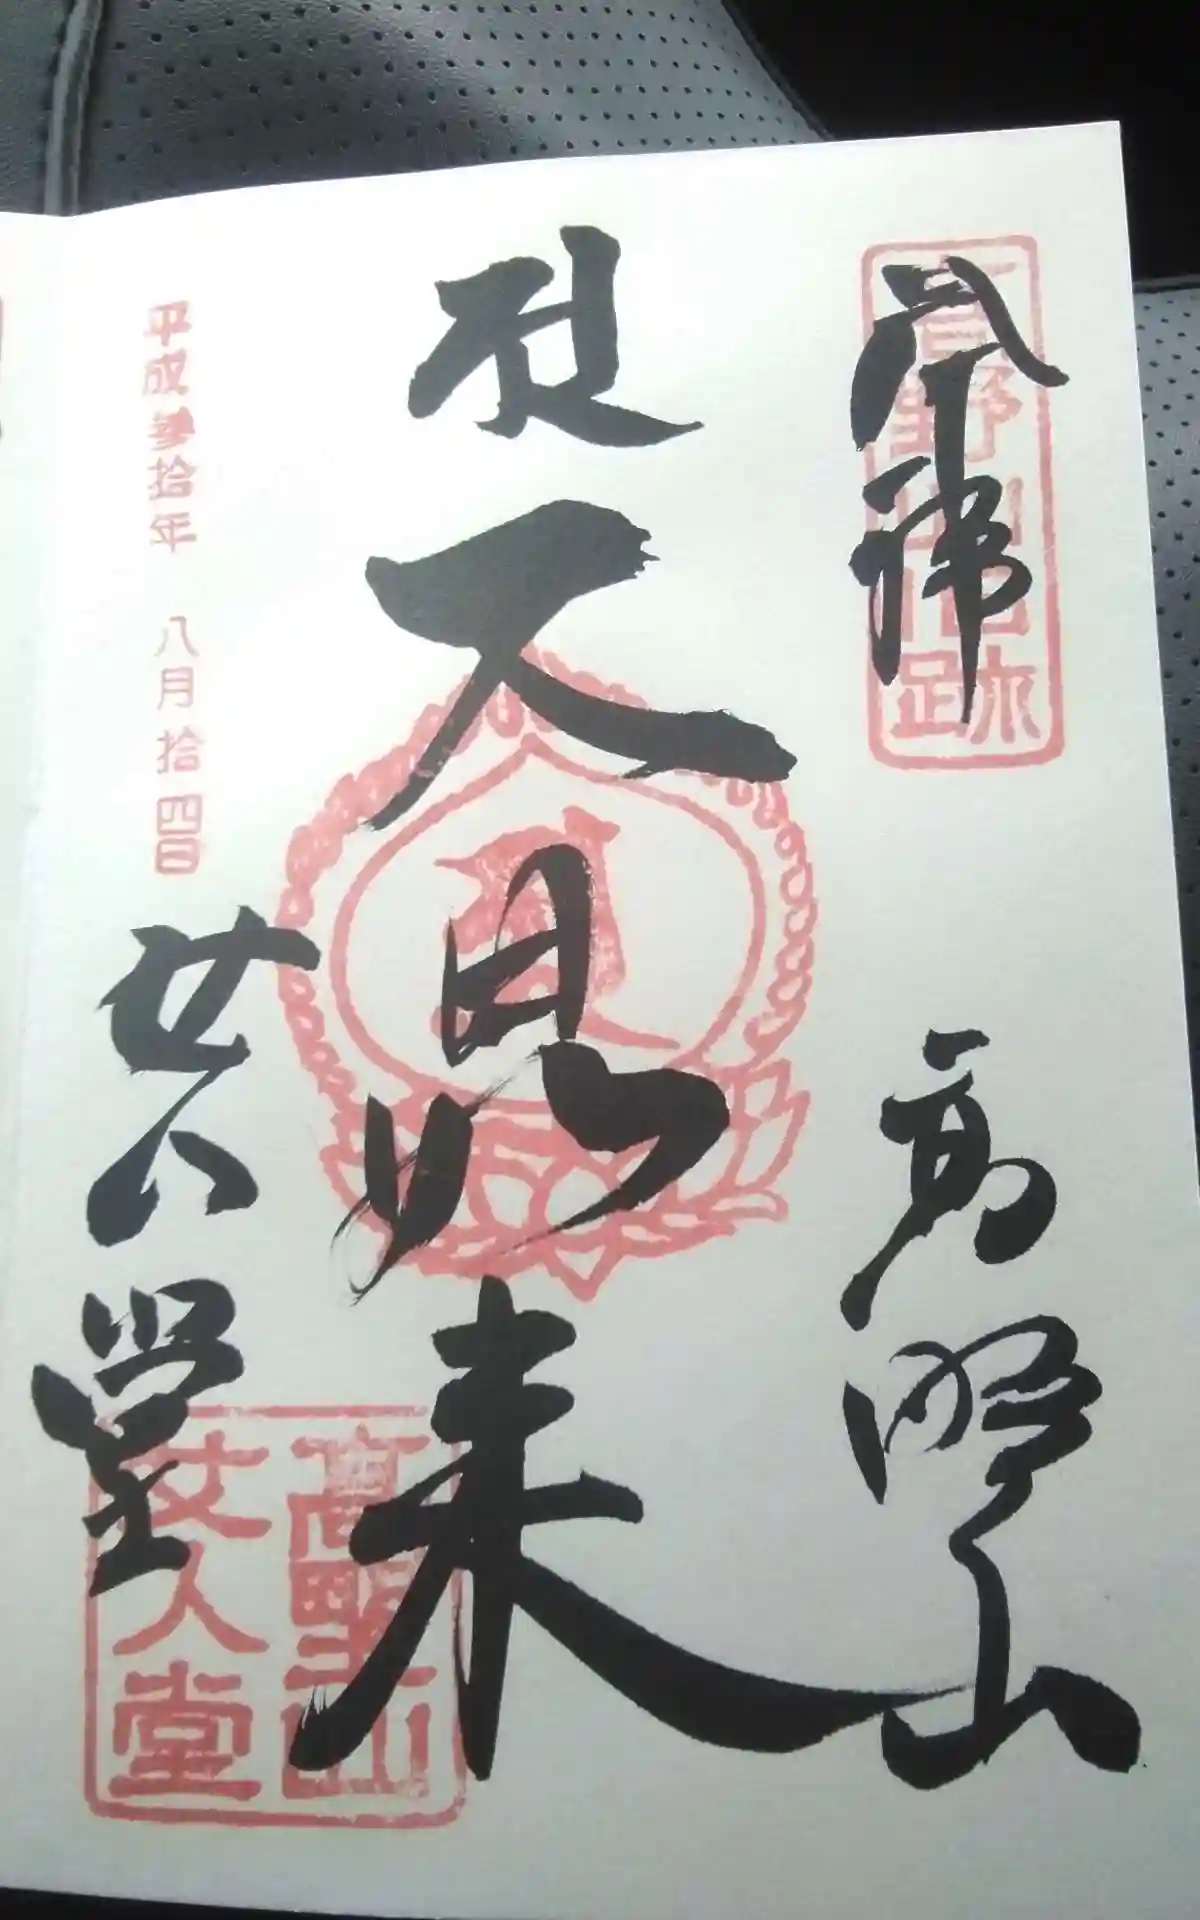 奉拝 高野山
高野山旧跡
大日如来
平成参拾年 八月拾四日
女人堂
高野山
女人堂